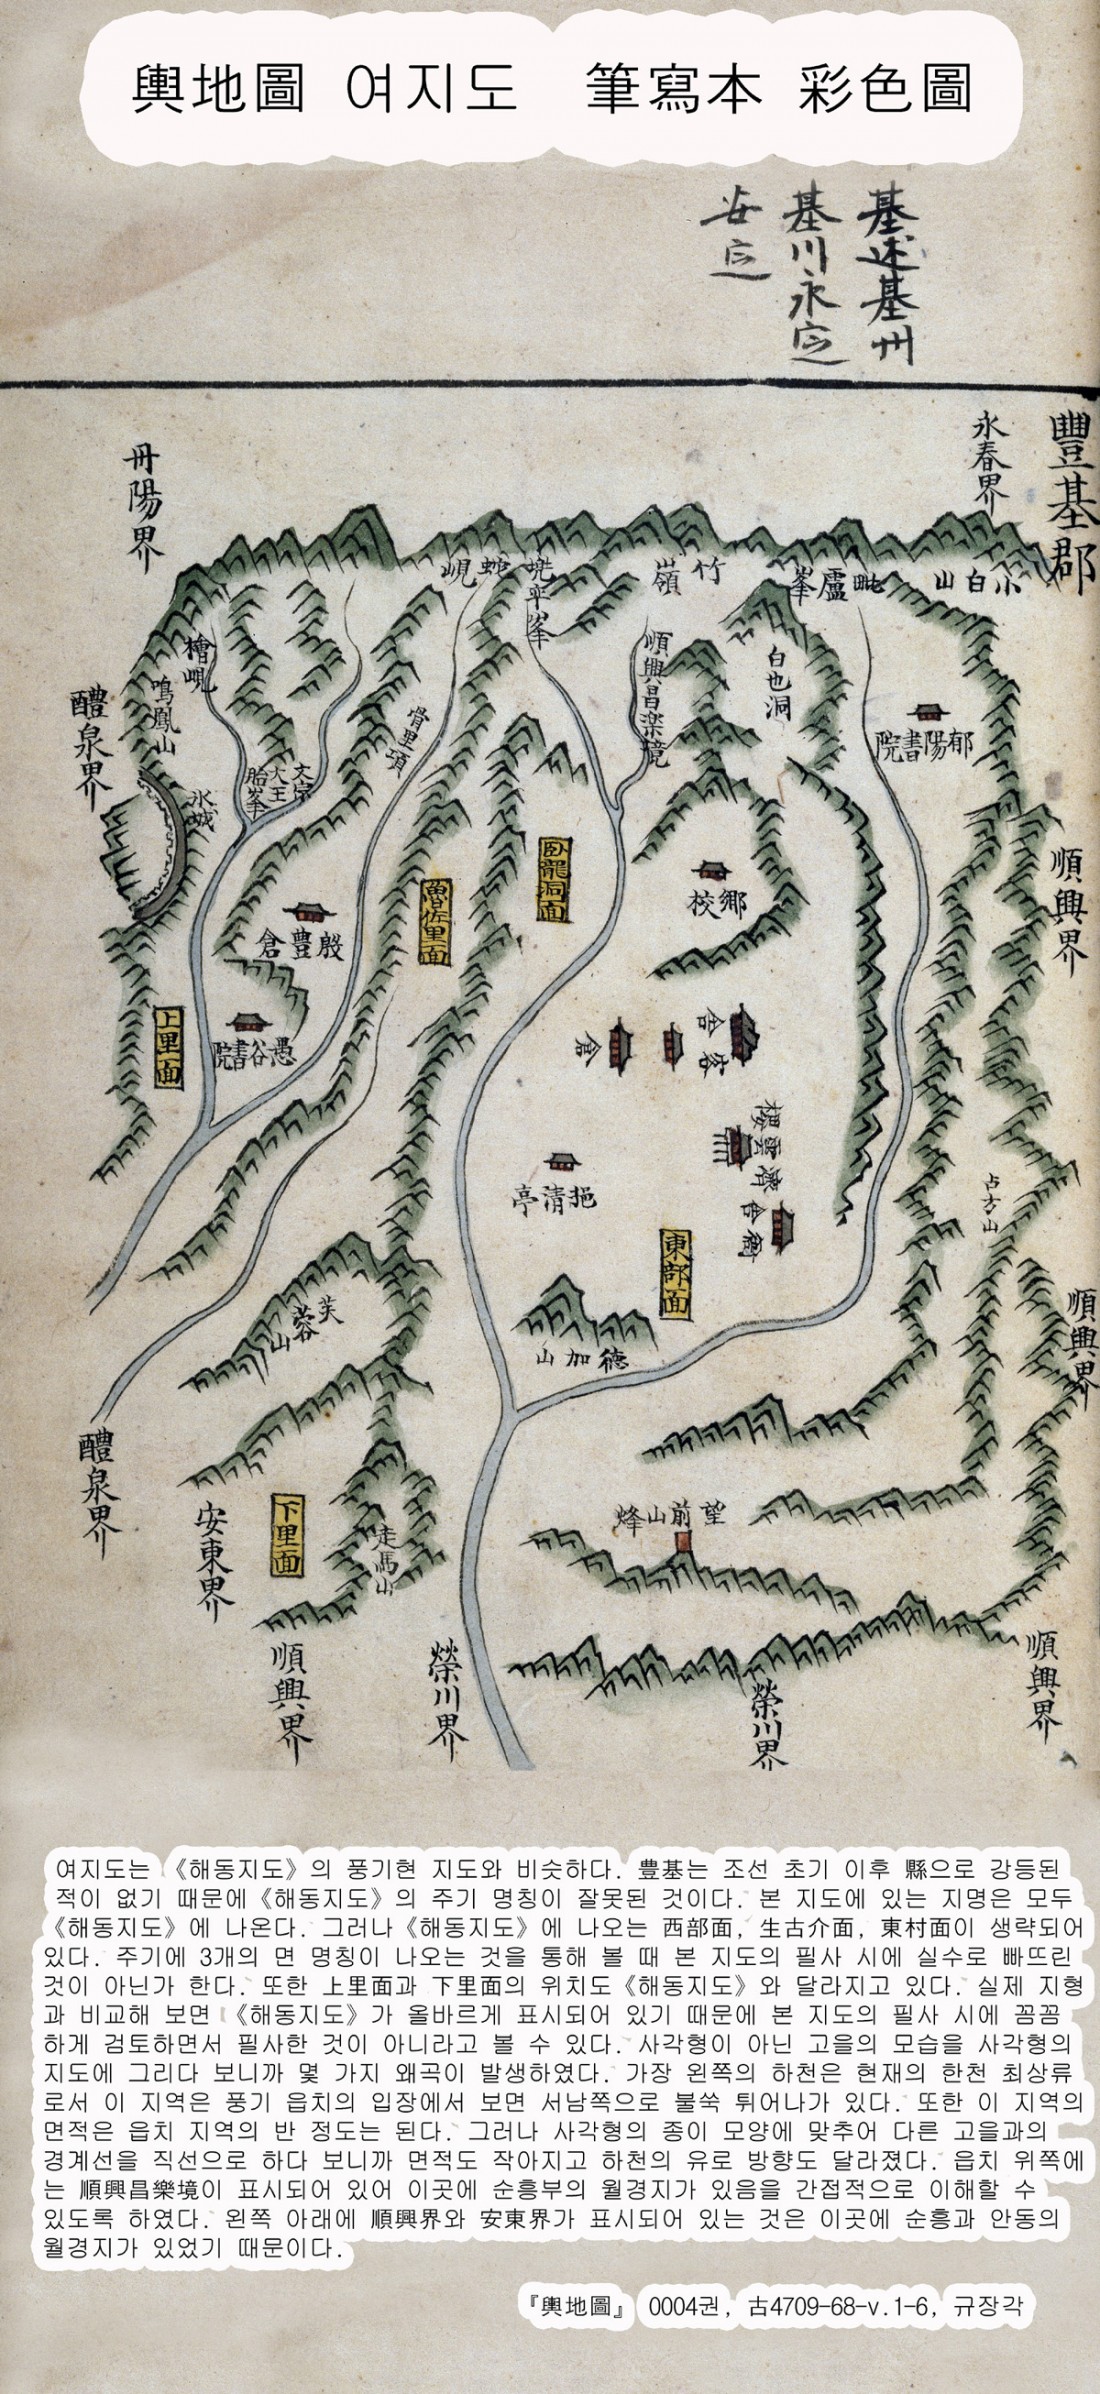 輿地圖 여지도 筆寫本 彩色圖
基木基州
基川永定
安定
豐基郡
永春界
丹陽界
小白山
毗盧峯
竹嶺
兜率峯
蛇峴
檜峴
鳴鳳山
醴泉界
順興昌楽境
白也洞
郁陽書院
骨里項
文宗
大王
胎峯
氷城
臥龍洞面
魯佐里面
鄕校
順興界
殷豊倉
上里面
愚谷書院
客舍
倉
濟雲樓
衙舍
挹清亭
東部面
占方山
順興界
芙蓉山
德加山
醴泉界
安東界
下里面
走馬山
望前山烽
順興界
榮川界
榮川界
順興界
여지도는 《해동지도》의 풍기현 지도와 비슷하다. 豊基는 조선 초기 이후 縣으로 강등된
적이 없기 때문에《해동지도》의 주기 명칭이 잘못된 것이다. 본 지도에 있는 지명은 모두
《해동지도》에 나온다. 그러나《해동지도》에 나오는 西部面, 生古介面, 東村面이 생략되어
있다. 주기에 3개의 면 명칭이 나오는 것을 통해 볼 때 본 지도의 필사 시에 실수로 빠뜨린
것이 아닌가 한다. 또한 上里面과 下里面의 위치도《해동지도》와 달라지고 있다. 실제 지형
과 비교해 보면 《해동지도》가 올바르게 표시되어 있기 때문에 본 지도의 필사 시에 꼼꼼
하게 검토하면서 필사한 것이 아니라고 볼 수 있다. 사각형이 아닌 고을의 모습을 사각형의
지도에 그리다 보니까 몇 가지 왜곡이 발생하였다. 가장 왼쪽의 하천은 현재의 한천 최상류
로서 이 지역은 풍기 읍치의 입장에서 보면 서남쪽으로 불쑥 튀어나가 있다. 또한 이 지역의
면적은 읍치 지역의 반 정도는 된다. 그러나 사각형의 종이 모양에 맞추어 다른 고을과의
경계선을 직선으로 하다 보니까 면적도 작아지고 하천의 유로 방향도 달라졌다. 읍치 위쪽에
는 順興昌樂境이 표시되어 있어 이곳에 순흥부의 월경지가 있음을 간접적으로 이해할 수
있도록 하였다. 왼쪽 아래에 順興界와 安東界가 표시되어 있는 것은 이곳에 순흥과 안동의
월경지가 있었기 때문이다.
『輿地圖』 0004권, 古4709-68-v.1-6, 규장각